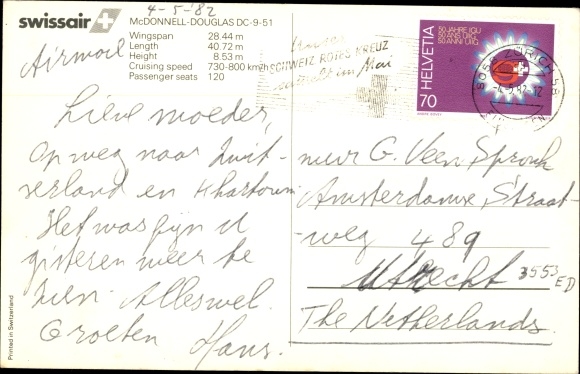 swissair
4-5-'82
McDONNELL-DOUGLAS DC-9-51
Wingspan 28.44 m
Length 40.72 m
Height 8.53 m
Cruising speed 730-800 km/h
Passenger seats 120
Airmail
Lieve moeder,
Op weg naar Zwit-
serland en Khartoum
Het was fijn U
gisteren weer te
zien. Alles wel.
Groeten Hans.
Printed in Switzerland
Unser
SCHWEIZ ROTES KREUZ
im Mai
HELVETIA
70
50 JAHRE IGU
50 ANS UIIG
50 ANNI UIIG
8058 ZÜRICH 58
-4.5.82-12
mevr G. Veen Spronk
Amsterdamse Straat-
-weg 489
Utrecht 3553
ED
The Netherlands.